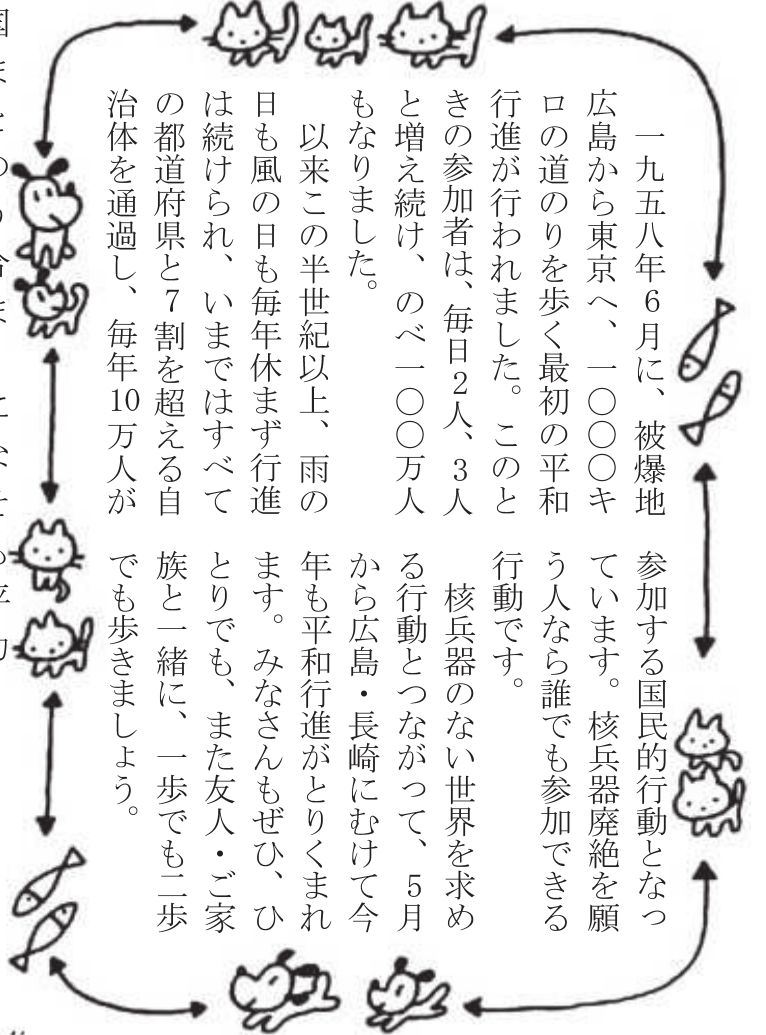 一九五八年6月に、被爆地
広島から東京へ、一〇〇〇キ
ロの道のりを歩く最初の平和
行進が行われました。このと
きの参加者は、毎日2人、3人
と増え続け、のべ一〇〇万人
もなりました。
以来この半世紀以上、雨の
日も風の日も毎年休まず行進
は続けられ、いまではすべて
の都道府県と7割を超える自
治体を通過し、毎年10万人が
参加する国民的行動となっ
ています。核兵器廃絶を願
う人なら誰でも参加できる
行動です。
核兵器のない世界を求め
る行動とつながって、5月
から広島・長崎にむけて今
年も平和行進がとりくまれ
ます。みなさんもぜひ、ひ
とりでも、また友人・ご家
族と一緒に、一歩でも二歩
でも歩きましょう。